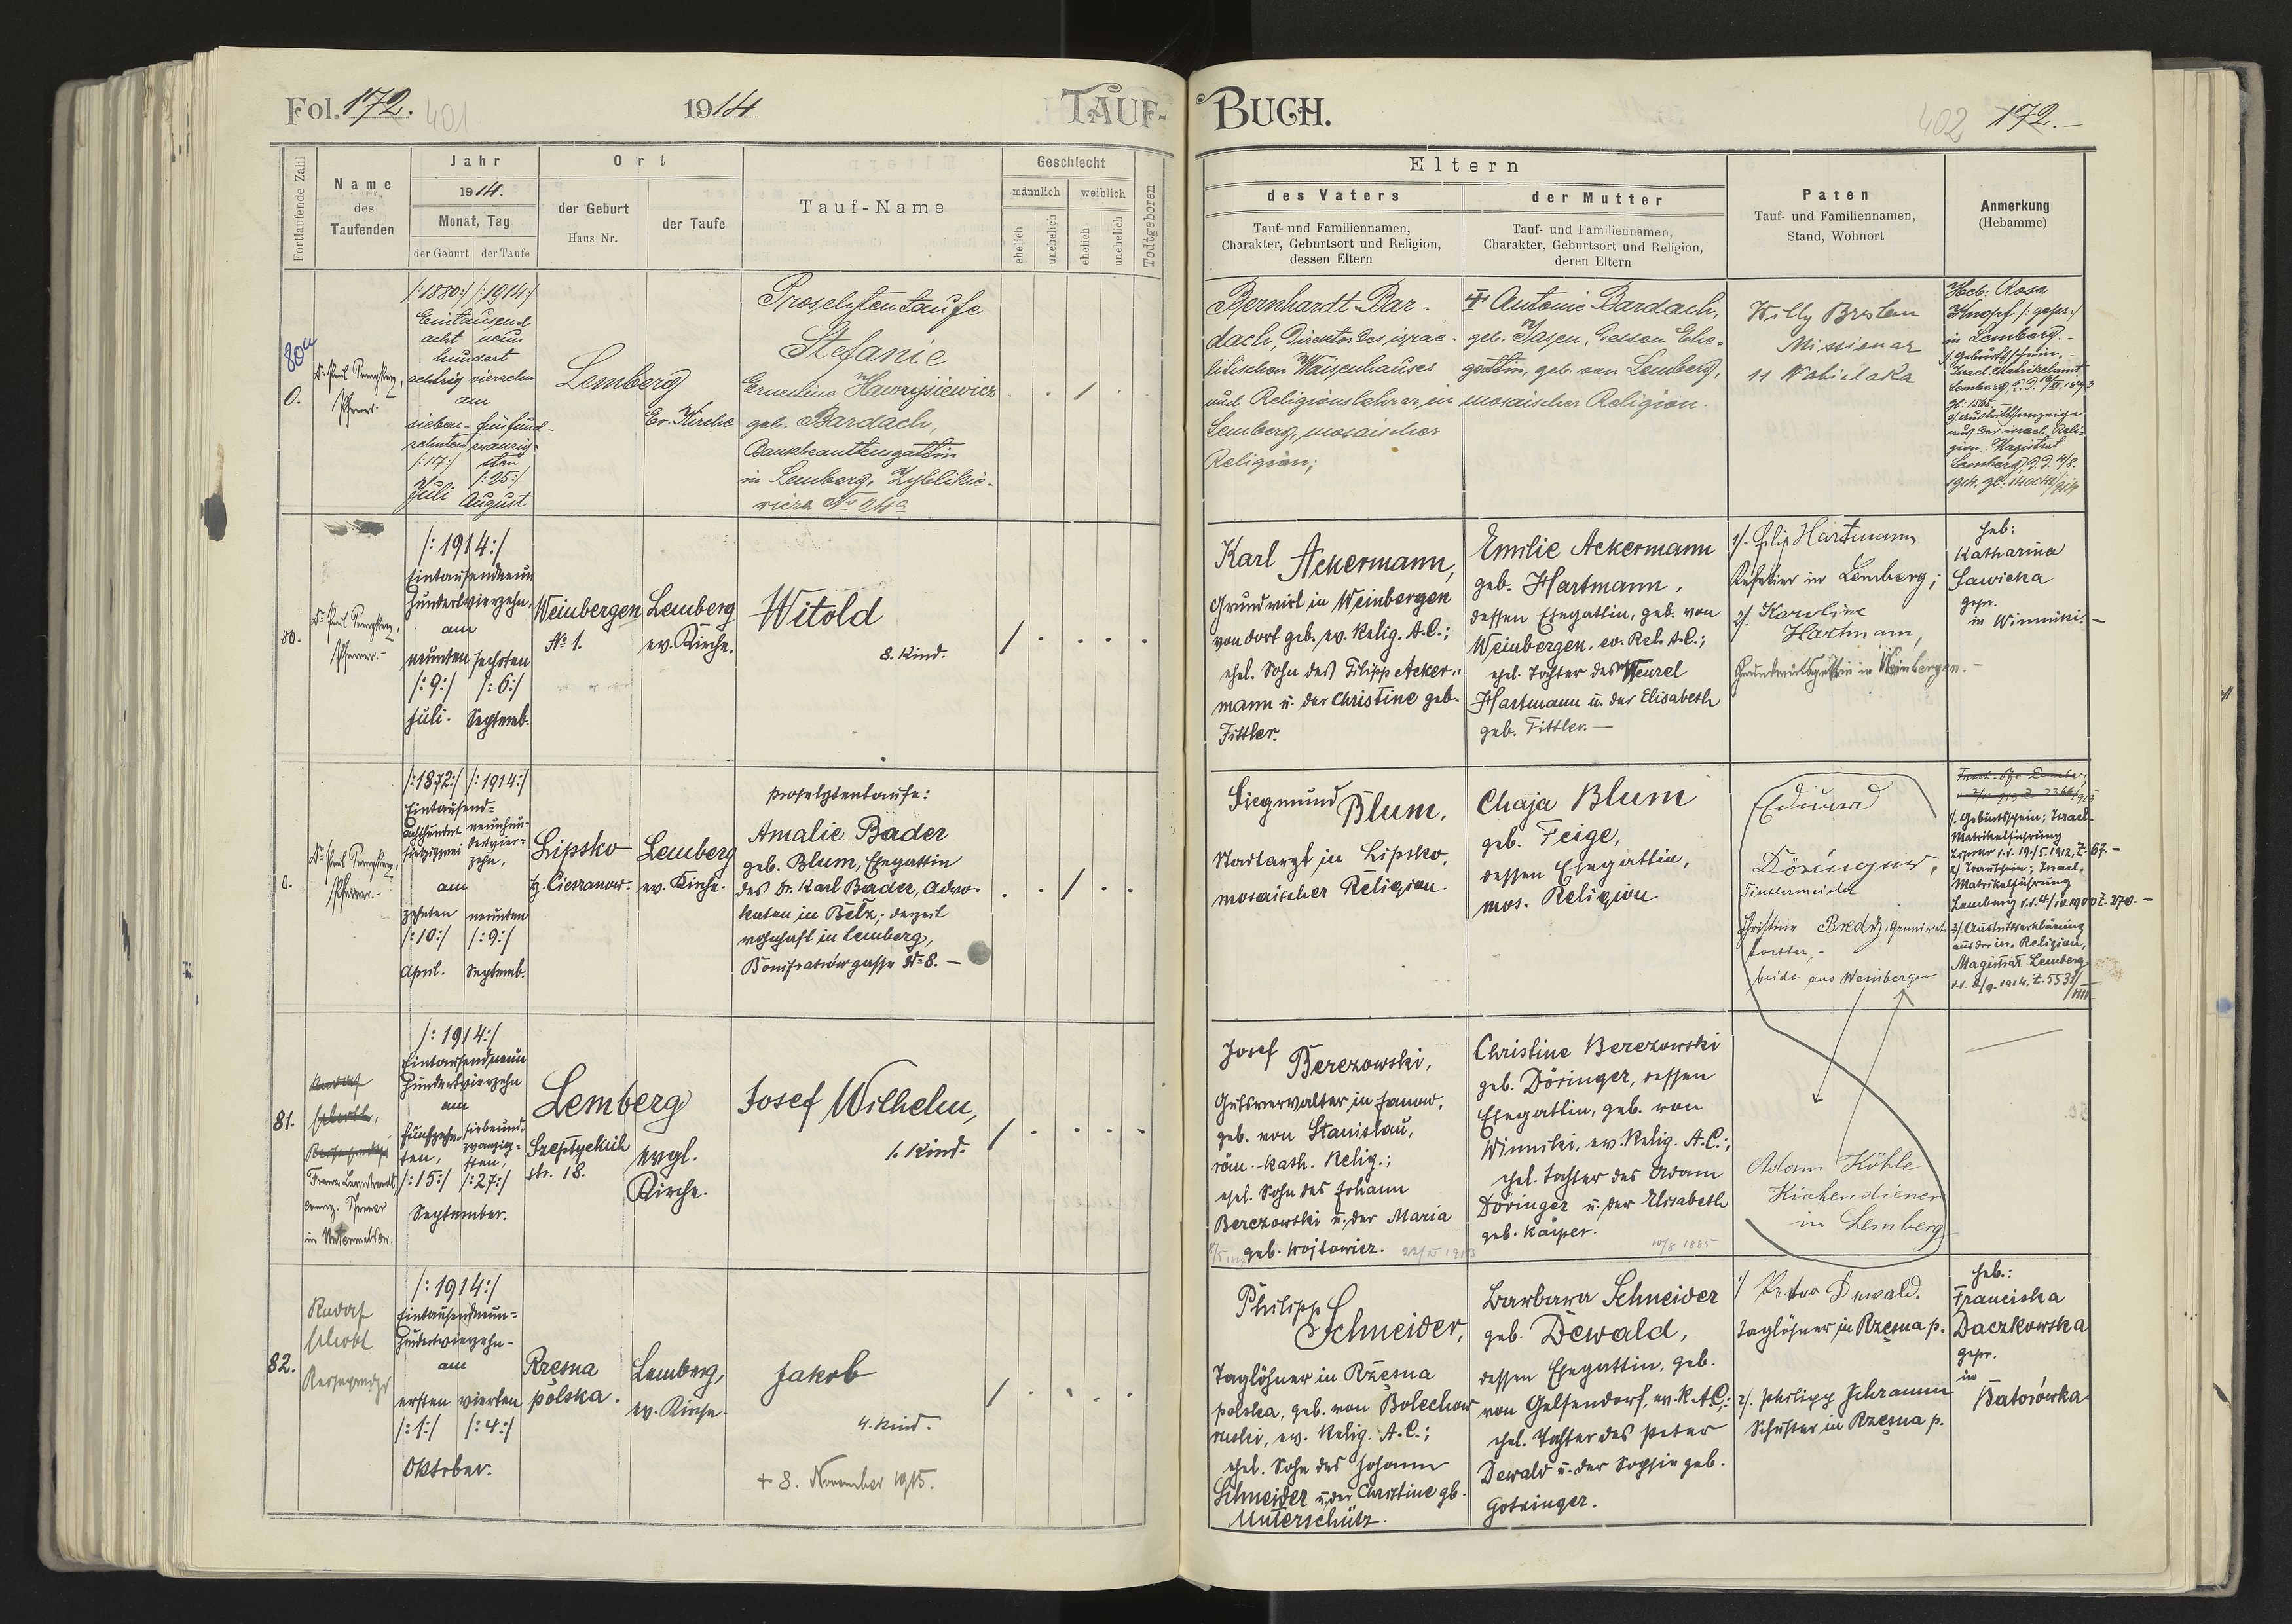 Fol. 172. 401
1914
TAUF-
Fortlaufende Zahl
Name
des
Taufenden
Jahr
1914.
Monat, Tag
der Geburt
der Taufe
Ort
der Geburt
Haus Nr.
der Taufe
Tauf-Name
Geschlecht
männlich
weiblich
ehelich
unehelich
ehelich
unehelich
Todtgeboren
80a
0.
Pfarrer.
/:1880:/ /:1914:/
Eintausend
acht neun
hundert
achtzig vierzehn
am
sieben- fünfund-
zehnten zwanzig-
/:17:/ sten
/:25:/
Juli August
Lemberg
Ev. Kirche
Proselytentaufe
Stefanie
Ernestine Hawrysiewicz
geb. Bardach,
Bankbeamtensgattin
in Lemberg, Zyblikie-
wicza No 24a
80.
Pfarrer.-
/:1914:/
Eintausendneun
hundertvierzehn,
am
neunten sechsten
/:9:/ /:6:/
Juli. Septemb.
Weinbergen
No 1.
Lemberg
ev. Kirche.
Witold
8. Kind.
0.
Pfarrer.-
/:1872:/ /:1914:/
Eintausend-
achthundert neunhun-
siebzigzwei dertvier-
zehn,
am
zehnten neunten
/:10:/ /:9:/
April. Septemb.
Lipsko
bz. Cieszanow.
Lemberg
ev. Kirche.
Proselytentaufe:
Amalie Bader
geb. Blum, Ehegattin
des Dr. Karl Bader, Advo-
katen in Belz; derzeit
wohnhaft in Lemberg,
Bonifratrówgasse No 8. —
81.
Pfarrer
in
/:1914:/
Eintausendneun
hundertvierzehn
am
fünfzehn- siebenund-
ten, zwanzig-
sten,
/:15:/ /:27:/
September.
Lemberg
Szeptyckich
str. 18.
evgl.
Kirche.
Josef Wilhelm,
1. Kind.
82.
Rudolf
/:1914:/
Eintausendneun-
hundertvierzehn-
am
ersten vierten
/:1:/ /:4:/
Oktober.
Rzęsna
polska.
Lemberg,
ev. Kirche.
Jakob
4. Kind.
+ 8. November 1915.
BUCH.
402 172.-
Eltern
des Vaters
Tauf- und Familiennamen,
Charakter, Geburtsort und Religion,
dessen Eltern
der Mutter
Tauf- und Familiennamen,
Charakter, Geburtsort und Religion,
deren Eltern
Paten
Tauf- und Familiennamen,
Stand, Wohnort
Anmerkung
(Hebamme)
Bernhardt Bar-
dach, Direktor des israe-
litischen Waisenhauses
und Religionslehrer, in
Lemberg, mosaischer
Religion;
Antonie Bardach,
geb. Jasen, dessen Ehe-
gattin, geb. von Lemberg,
mosaischer Religion.
Missionar
11
Heb: Rosa
Knopf /:gepr:/
in Lemberg.-
1/. Geburtsschein,-
Israel. Matrikelamt
Lemberg
2/. Austrittsanzeige
aus der israel. Reli-
gion. Magistrat
Lemberg
Karl Ackermann,
Grundwirt in Weinbergen
von dort geb. ev. Relig. A.C.;
ehel. Sohn des Filipp Acker-
mann u. der Christine geb.
Fittler.
Emilie Ackermann
geb. Hartmann,
dessen Ehegattin, geb. von
Weinbergen, ev. Rel. A.C.;
ehel. Tochter des Wenzel
Hartmann u. der Elisabeth
geb. Fittler.—
1/. Filip Hartmann,
in Lemberg;
2/. Karoline
Hartmann,
Grundwirtsgattin in Weinbergen.-
Heb:
Katharina
Sawicka
gepr.
in Winniki.-
Siegmund Blum,
Stadtarzt in Lipsko,
mosaischer Religion.
Chaja Blum
geb. Feige,
dessen Ehegattin,
mos. Religion.
Eduard
Döringer,
Tischlermeister
Christine Bredy, Grundwirts-
tochter,-
beide aus Weinbergen
1/. Geburtsschein; Israel.
Matrikelführung
Lipsko d.d. 19/5. 1912, Z. 67.-
2/. Trauschein; Israel.
Matrikelführung
Lemberg d.d. 4/10 1900 Z. 270.-
3/. Austrittserklärung
aus der isr. Religion,
Magistrat Lemberg
d.d. 2/9. 1914, Z. 5531/
VIII
Josef Berezowski,
Gutsverwalter in Janow,
geb. von Stanislau,
röm.-kath. Relig.;
ehel. Sohn des Johann
Berezowski u. der Maria
geb. Wojtowicz.
Christine Berezowski
geb. Döringer, dessen
Ehegattin, geb. von
Winniki, ev. Relig. A.C.;
ehel. Tochter des Adam
Döringer u. der Elisabeth
geb. Käiper.
10/8 1885
Adam Köhle
Kirchendiener
in Lemberg
Philipp Schneider,
Taglöhner in Rzęsna
polska, geb. von Bolechow
ruski, ev. Relig. A.C.;
ehel. Sohn des Johann
Schneider u. der Christine gb.
Unterschütz.
Barbara Schneider
geb. Dewald,
dessen Ehegattin, geb.
von Gelsendorf, ev. R. A.C.;
ehel. Tochter des Peter
Dewald u. der Sophie geb.
Gotzinger.
1/ Peter Dewald.
Taglöhner in Rzęsna p.
2/. Philipp Schramm
Schuster in Rzęsna p.
Heb.:
Franciska
Daczkowska
gepr.
in
Batorówka